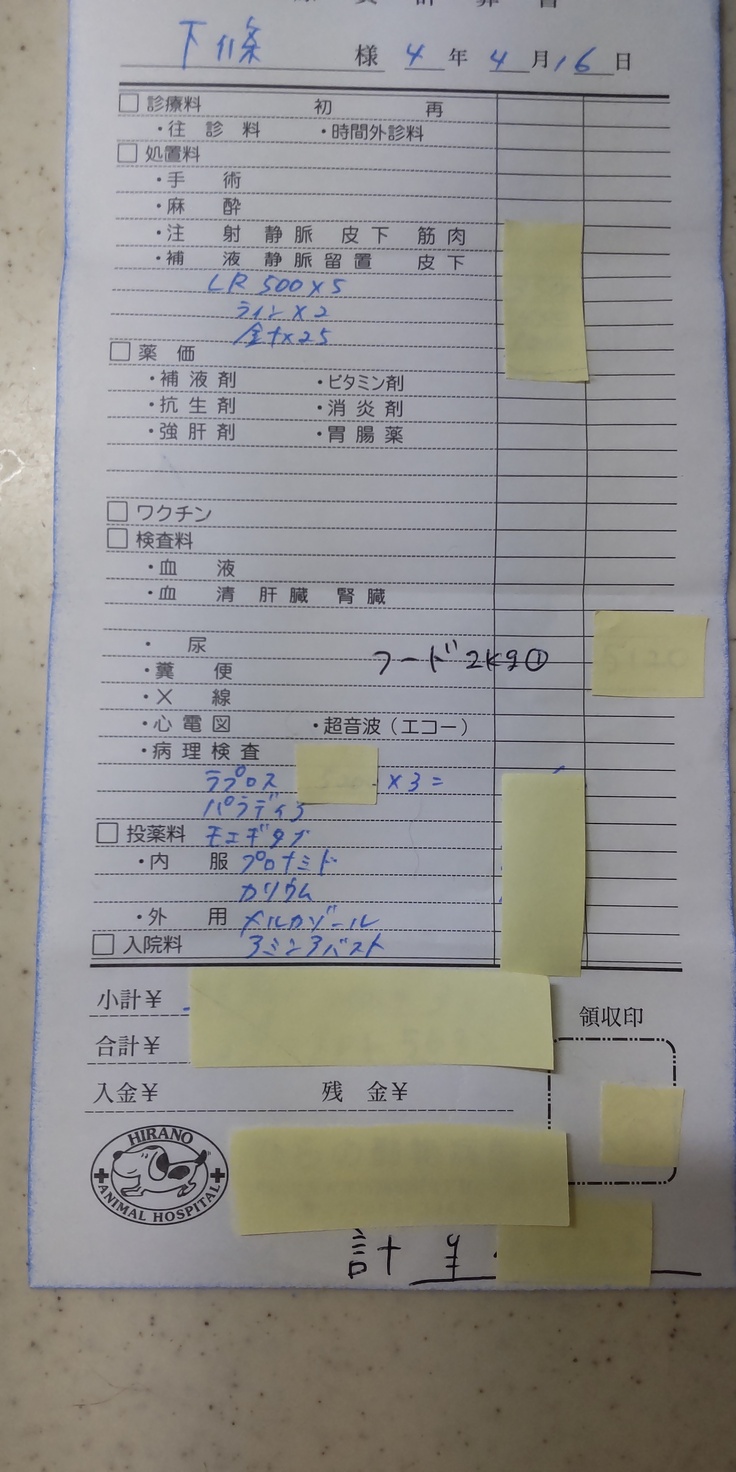 下條 様 4年4月16日
□ 診療料 初 再
・往診料 ・時間外診料
□ 処置料
・手術
・麻酔
・注射 静脈 皮下 筋肉
・補液 静脈留置 皮下
LR 500×5
ライン×2
×25
□ 薬価
・補液剤 ・ビタミン剤
・抗生剤 ・消炎剤
・強肝剤 ・胃腸薬
□ ワクチン
□ 検査料
・血液
・血清 肝臓 腎臓
・尿
フード2kg①
・糞便
・X線
・心電図 ・超音波(エコー)
・病理検査
ラプロス ×3=
□ 投薬料 モエギタブ
・内服 プロナミド
カリウム
・外用 メルカゾール
□ 入院料 アミンアバスト
小計¥
領収印
合計¥
入金¥ 残金¥
HIRANO
ANIMAL HOSPITAL
計 ¥